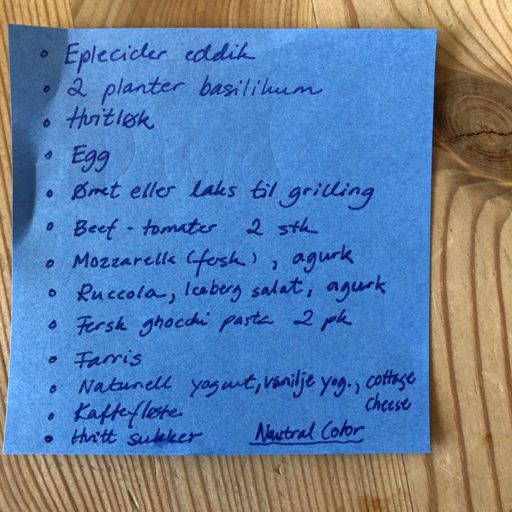 • Eplecider eddik
• 2 planter basilikum
• Hvitløk
• Egg
• Ørret eller laks til grilling
• Beef-tomater 2 stk
• Mozzarella (fersk), agurk
• Ruccola, Iceberg salat, agurk
• Fersk ghocchi pasta 2 pk
• Farris
• Naturell yogurt, vanilje yog., cottage cheese
• Kaffefløte
• Hvitt sukker Nautral Color